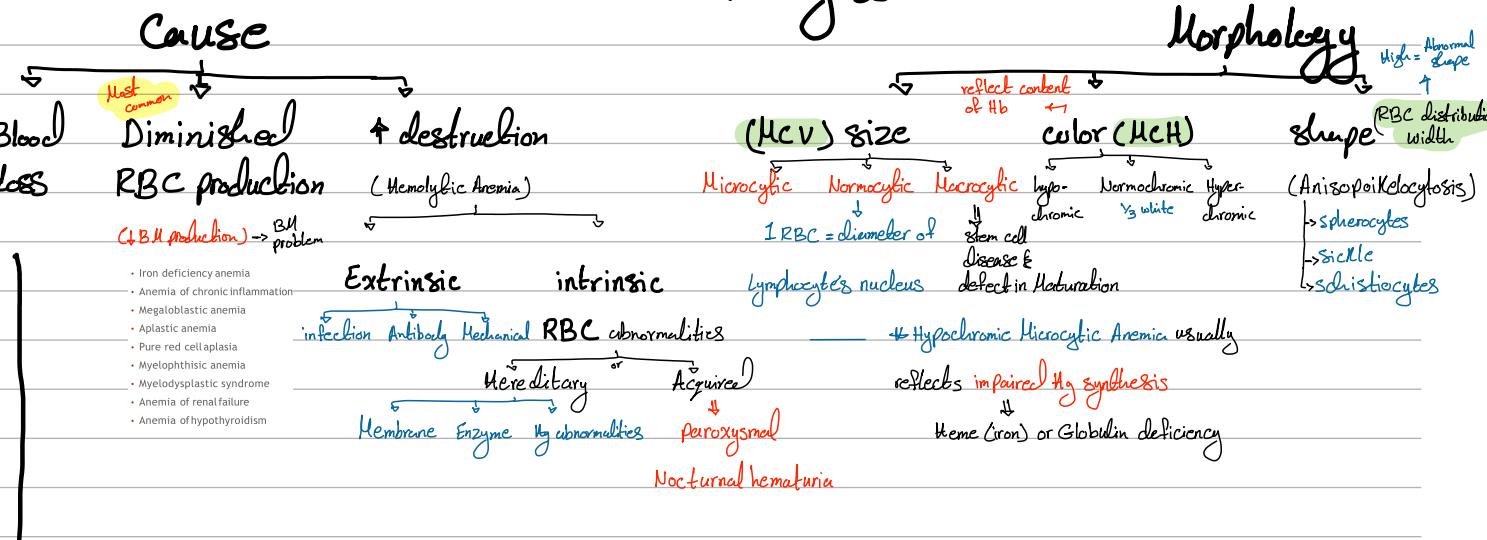 Cause
Most
common
Blood
Loss
Diminished
RBC production
(↓BM production) → BM
problem
• Iron deficiency anemia
• Anemia of chronic inflammation
• Megaloblastic anemia
• Aplastic anemia
• Pure red cell aplasia
• Myelophthisic anemia
• Myelodysplastic syndrome
• Anemia of renal failure
• Anemia of hypothyroidism
↑ destruction
(Hemolytic Anemia)
Extrinsic
infection Antibody Mechanical
intrinsic
RBC abnormalities
Hereditary or Acquired
Membrane Enzyme Hg abnormalities
Paroxysmal
Nocturnal hematuria
Morphology
reflect content
of Hb
(MCV) size
Microcytic Normocytic Macrocytic
1 RBC = diameter of
Lymphocyte's nucleus
stem cell
disease &
defect in Maturation
color (MCH)
hypo-
chromic
Normochromic
1/3 white
Hyper-
chromic
High = Abnormal
shape
shape (RBC distributi
width
(Anisopoikelocytosis)
→ spherocytes
→ sickle
→ schistiocytes
Hypochromic Microcytic Anemia usually
reflects impaired Hg synthesis
Heme (iron) or Globulin deficiency